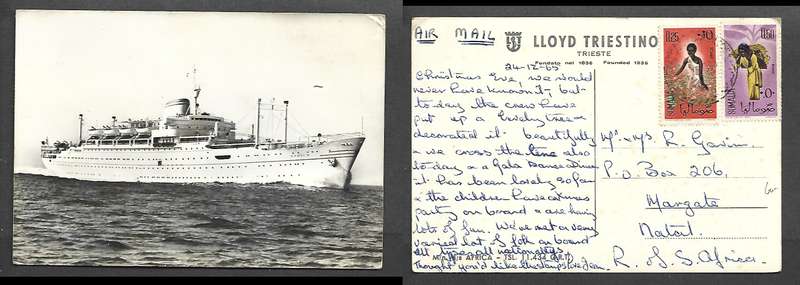 AIR MAIL
LLOYD TRIESTINO
TRIESTE
Fondato nel 1836 Founded 1836
24-12-65
Christmas Eve, we would
never have known it, but
to-day the crew have
put up a lovely tree &
decorated it beautifully
& we cross the line also
to-day & a Gala Dance
it has been lovely so far
& the children have
party on board & are having
lots of fun. We've met a very
varied lot of folk on board
all nationalities
Thought you'd like the stamps love
M/n AFRICA - TSL. 11.434 (G.R.T.)
SOMALIA
SOMALIA
Mr & Mrs R. Gavin.
P.O. Box 206,
Margate
Natal.
R. of S. Africa.